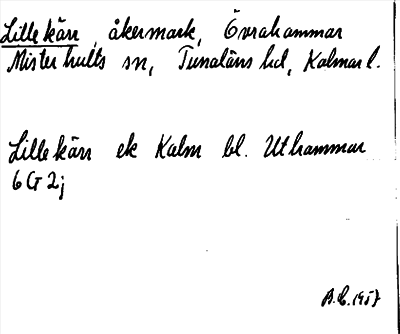 Lillekärr, åkermark, Övrahammar
Misterhults sn, Tunaläns hd, Kalmar l.
Lillekärr ek Kalm bl. Uthammar
6G2j
B.E. 1957